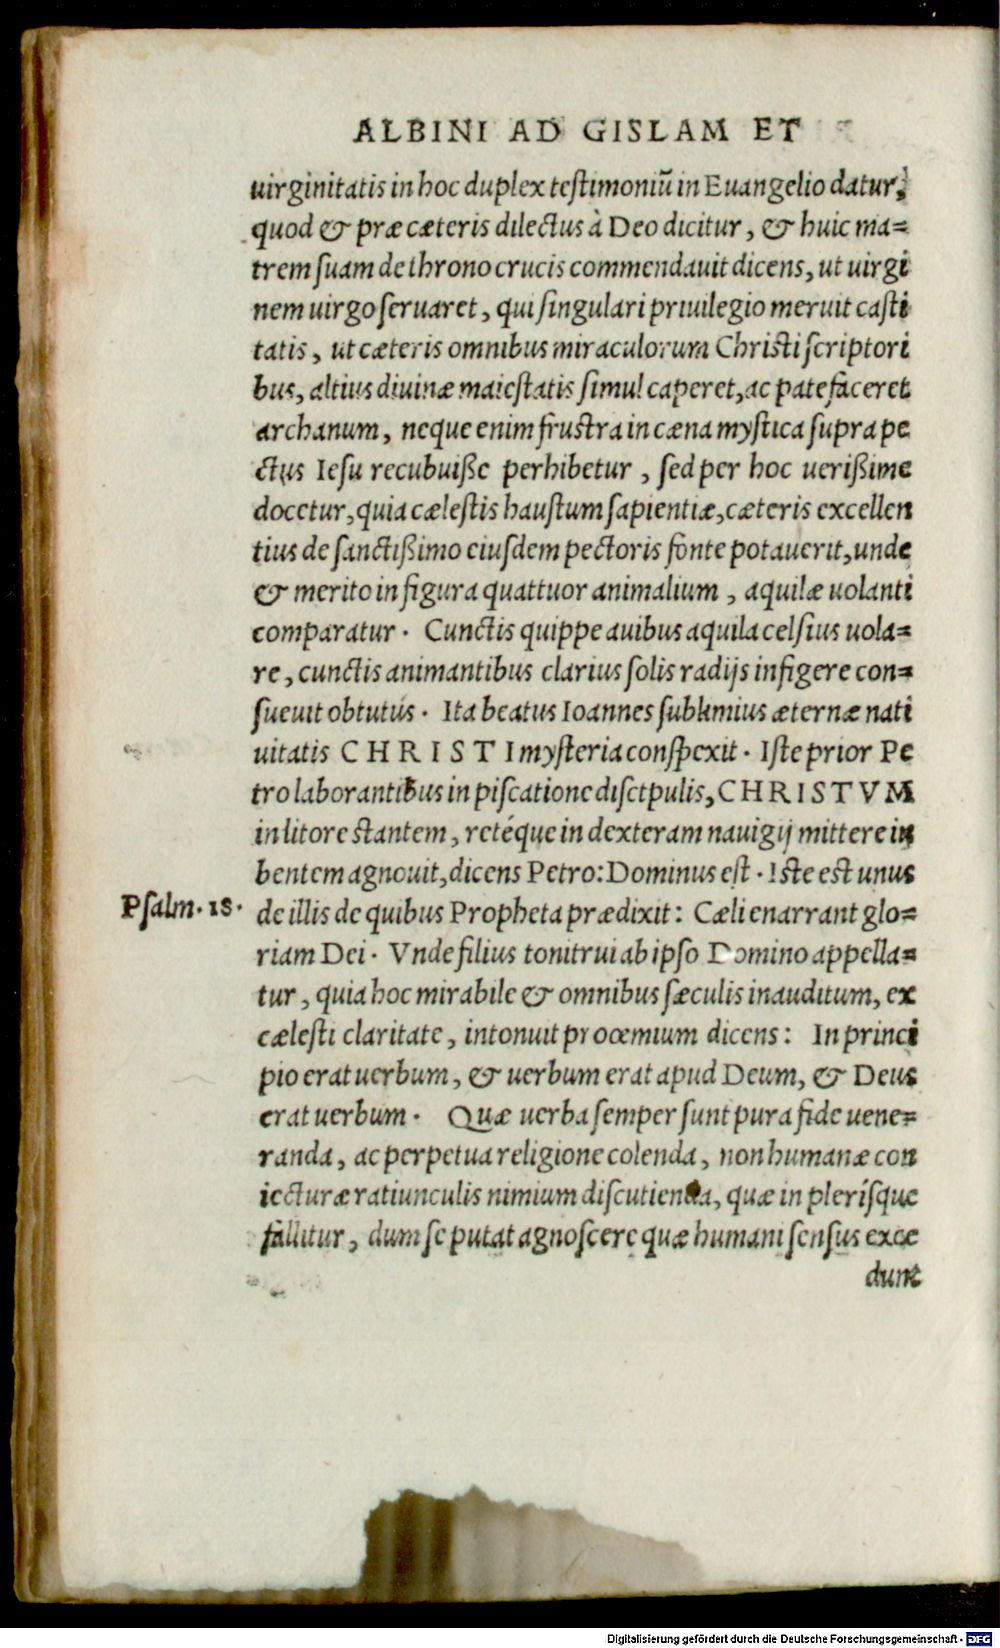 ALBINI AD GISLAM ET
uirginitatis in hoc duplex teſtimoniũ in Euangelio datur,
quod & præ cæteris dilectus à Deo dicitur, & huic ma=
trem ſuam de throno crucis commendauit dicens, ut uirgi
nem uirgo ſeruaret, qui ſingulari priuilegio meruit caſti
tatis, ut cæteris omnibus miraculorum Chriſti ſcriptori
bus, altius diuinæ maieſtatis ſimul caperet, ac patefaceret
archanum, neque enim fruſtra in cæna myſtica ſupra pe
ctus Ieſu recubuiße perhibetur, ſed per hoc uerißime
docetur, quia cæleſtis hauſtum ſapientiæ, cæteris excellen
tius de ſanctißimo eiuſdem pectoris fonte potauerit, unde
& merito in figura quattuor animalium, aquilæ uolanti
comparatur. Cunctis quippe auibus aquila celſius uola=
re, cunctis animantibus clarius ſolis radijs infigere con=
ſueuit obtutus. Ita beatus Ioannes ſublimius æternæ nati
uitatis CHRISTI myſteria conſpexit. Iſte prior Pe
tro laborantibus in piſcatione diſcipulis, CHRISTVM
in litore ſtantem, retéque in dexteram nauigij mittere iu
bentem agnouit, dicens Petro: Dominus eſt. Iſte eſt unus
Pſalm. 18.
de illis de quibus Propheta prædixit: Cæli enarrant glo=
riam Dei. Vnde filius tonitrui ab ipſo Domino appella=
tur, quia hoc mirabile & omnibus ſæculis inauditum, ex
cæleſti claritate, intonuit proœmium dicens: In princi
pio erat uerbum, & uerbum erat apud Deum, & Deus
erat uerbum. Quæ uerba ſemper ſunt pura fide uene=
randa, ac perpetua religione colenda, non humanæ con
iecturæ ratiunculis nimium diſcutienda, quæ in pleríſque
fallitur, dum ſe putat agnoſcere quæ humani ſenſus exce
dunt
Digitalisierung gefördert durch die Deutsche Forschungsgemeinschaft - DFG